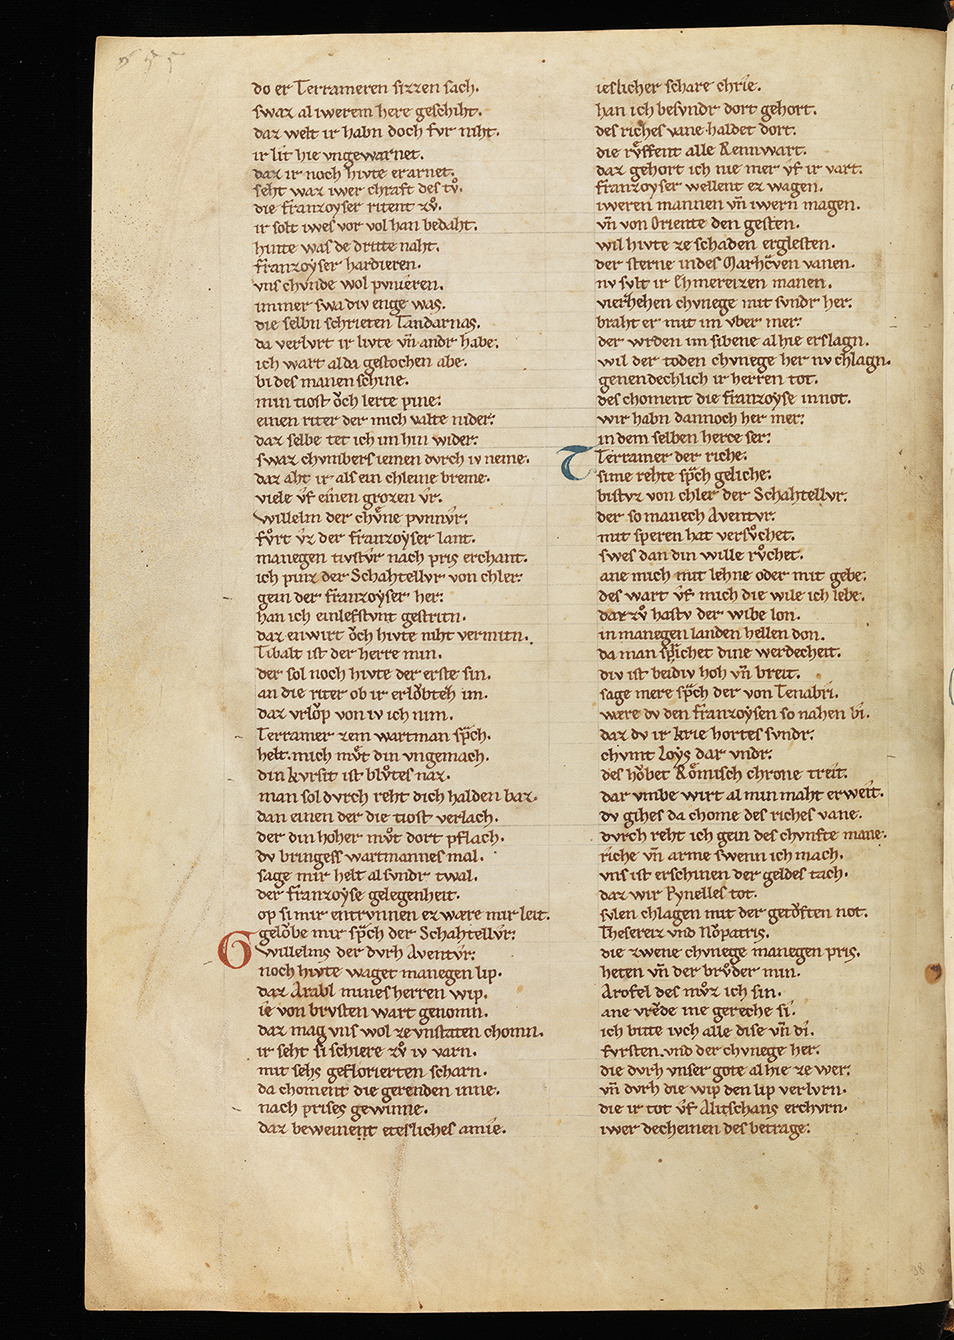 do er Terrameren sizzen sach.
swaz al iwerem here geschiht.
daz welt ir habn doch fvr niht.
ir lit hie vngewarnet.
daz ir noch hivte erarnet.
seht waz iwer chraft des tv̊.
die franzoyser ritent zv̊.
ir solt iwes vor vol han bedaht.
hinte was de dritte naht.
franzoyser hardieren.
vns chvnde wol pvnieren.
immer swa div enge was.
die selbn schrieten Tandarnas.
da verlvrt ir livte vn̄ andr habe.
ich wart alda gestochen abe.
bi des manen schine.
min tiost ŏch lerte pine.
einen riter der mich valte nider.
daz selbe tet ich im hin wider.
swaz chvmbers iemen dvrch iv neme.
daz aht ir als ein chleine breme.
viele v̂f einen grozen v̂r.
Willelm der chv̊ne pvnnv̂r.
fv̊rt v̂z der franzoyser lant.
manegen tivstv̂r nach pris erchant.
ich pinz der Schahtellvr von chler.
gein der franzoyser her.
han ich einlefstvnt gestritn.
daz enwirt ŏch hivte niht vermitn.
Tibalt ist der herre min.
der sol noch hivte der erste sin.
an die riter ob ir erlŏbteh im.
daz vrlŏp von iv ich nim.
Terramer zem wartman sp̄ch.
helt. mich mv̊t din vngemach.
din kvrsit ist blv̊tes naz.
man sol dvrch reht dich halden baz.
dan einen der die tiost verlach.
der din hoher mv̊t dort pflach.
dv bringess wartmannes mal.
sage mir helt al svndr twal.
der franzoyse gelegenheit.
op si mir entrvnnen ez wære mir leit.
Gelŏbe mir sp̄ch der Schahtellv̂r.
Willelms der dvrh Aventv̂r.
noch hivte waget manegen lip.
daz Arabl mines herren wip.
ie von brvsten wart genomn.
daz mag vns wol ze vnstaten chomn.
ir seht si schiere zv̊ iv varn.
mit sehs geflorierten scharn.
da choment die gerenden inne.
nach prises gewinne.
daz beweinent etesliches amie.
ieslicher schare chrie.
han ich besvndr dort gehort.
des riches vane haldet dort.
die rv̊ffent alle Rennwart.
daz gehort ich nie mer v̂f ir vart.
franzoyser wellent ez wagen.
iweren mannen vn̄ iwern magen.
vn̄ von Oriente den gesten.
wil hivte ze schaden erglesten.
der sterne indes Marhcven vanen.
nv svlt ir Ehmereizen manen.
vierhehen chvnege mit svndr her.
braht er mit im vber mer.
der wrden im sibene al hie erslagn.
wil der toden chvnege her nv chlagn.
genendechlich ir herren tot.
des choment die franzoyse in not.
wir habn dannoch her mer.
in dem selben herce ser.
Terramer der riche.
sime rehte sp̄ch geliche.
bistvz von chler der Schahtellvr.
der so manech Aventvr.
mit speren hat versv̊chet.
swes dan din wille rv̊chet.
ane mich mit lehne oder mit gebe.
des wart v̂f mich die wile ich lebe.
dar zv̊ hastv der wibe lon.
in manegen landen hellen don.
da man sp̄ichet dine werdecheit.
div ist beidiv hoh vn̄ breit.
sage mere sp̄ch der von Tenabri.
wære dv den franzoysen so nahen bi.
daz dv ir krie hortes svndr.
chvmt Loys dar vndr.
des hŏbet Rŏmisch chrone treit.
dar vmbe wirt al min maht erweit.
dv gihes da chome des riches vane.
dvrch reht ich gein des chvnfte mane.
riche vn̄ arme swenn ich mach.
vns ist erschinen der geldes tach.
daz wir Pynelles tot.
svlen chlagen mit der getŏften not.
Thesereiz vnd Nŏpatris.
die zwene chvnege manegen pris.
heten vn̄ der brv̊der min.
Arofel des mv̊z ich sin.
ane vrevde me gereche si.
ich bitte ivch alle dise vn̄ di.
fvrsten. vnd der chvnege her.
die dvrh vnser gote al hie ze wer.
vn̄ dvrh die wip den lip verlvrn.
die ir tot v̂f Alitschans erchvrn.
iwer decheinen des betrage.